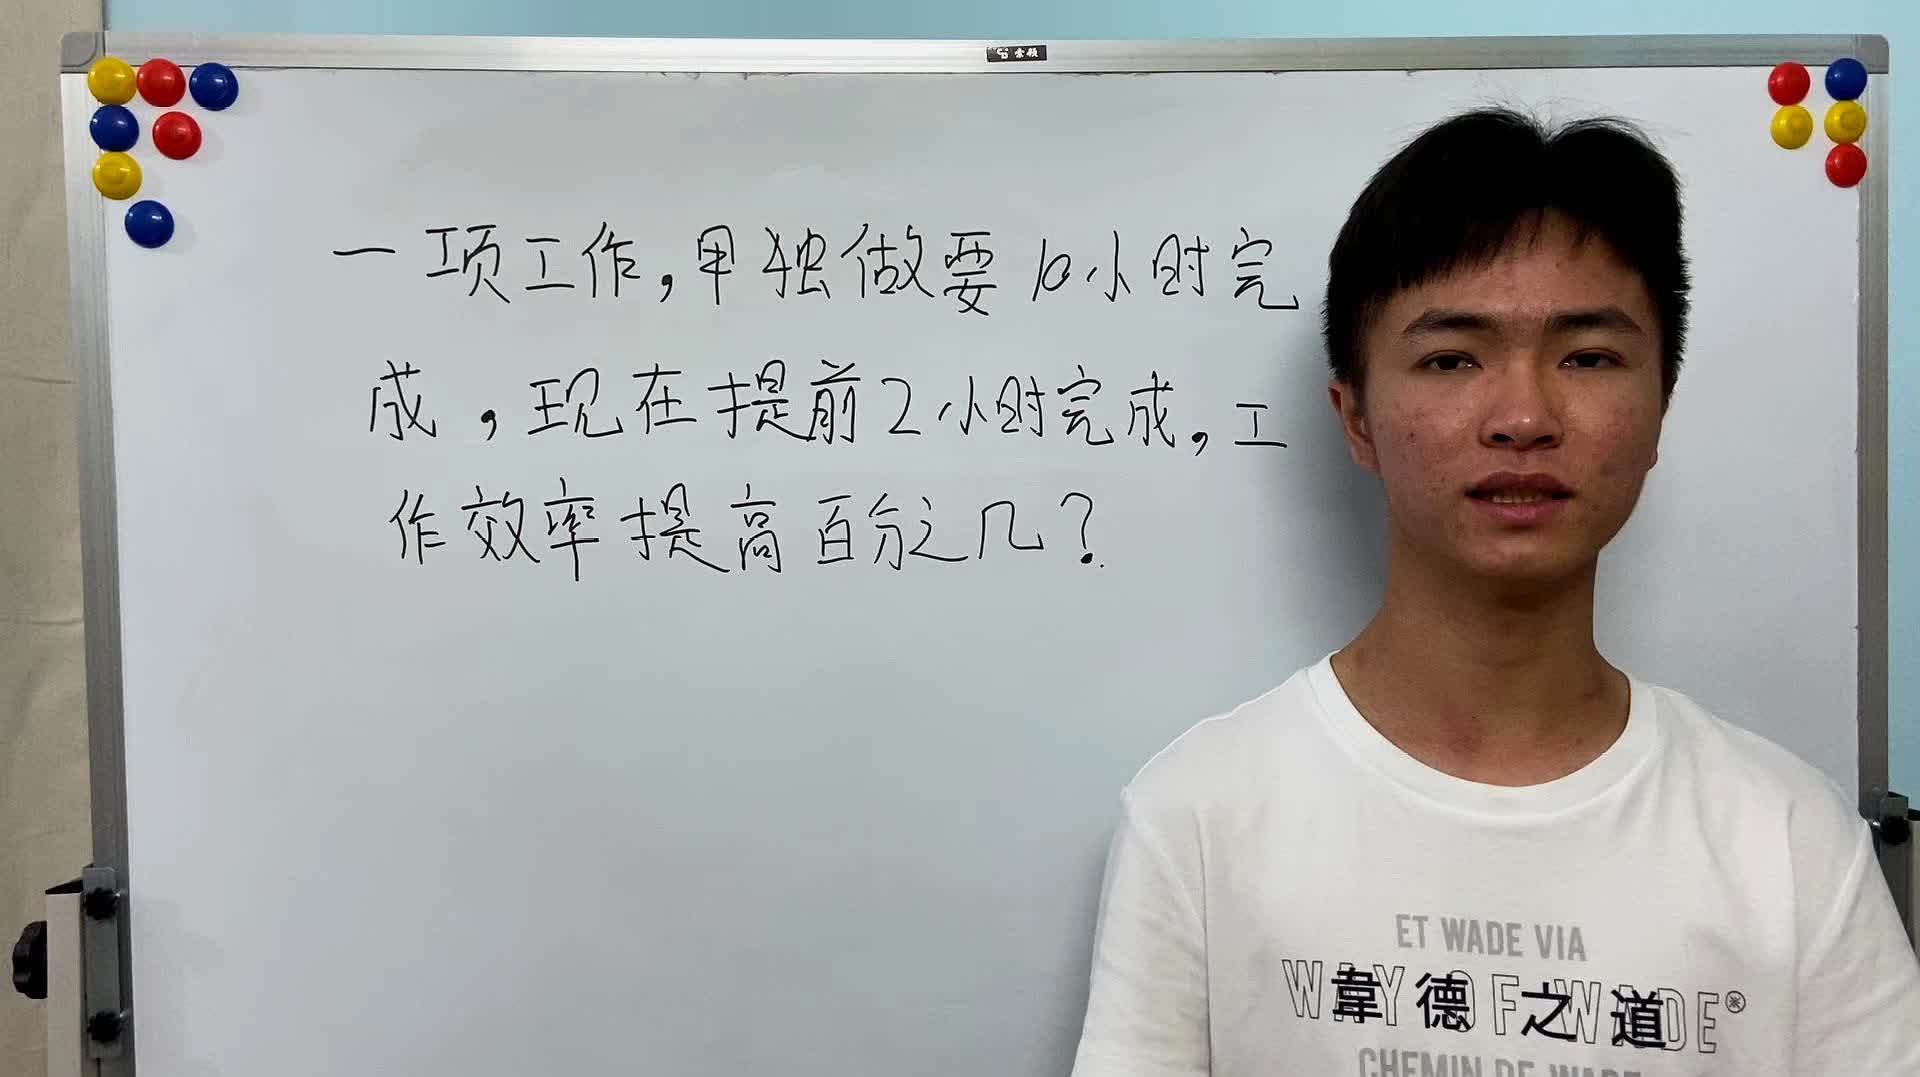 一项工作,甲独做要10小时完
成,现在提前2小时完成,工
作效率提高百分之几?
ET WADE VIA
WAY OF WADE®
韋德之道
CHEMIN DE WADE